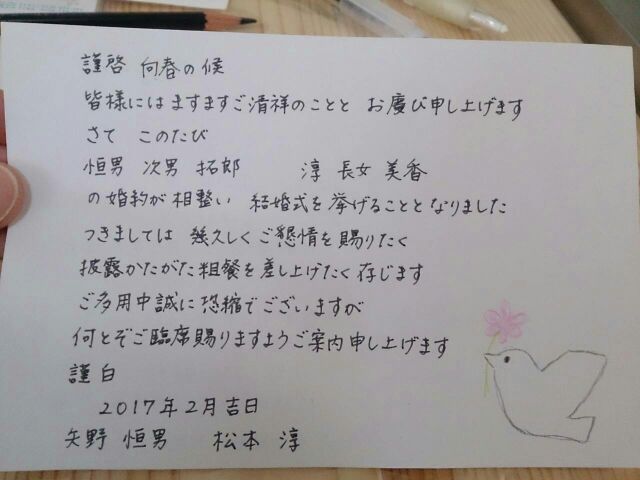 謹啓 向春の候
皆様にはますますご清祥のことと お慶び申し上げます
さて このたび
恒男 次男 拓郎 淳 長女 美香
の婚約が相整い 結婚式を挙げることとなりました
つきましては 幾久しくご懇情を賜りたく
披露かたがた粗餐を差し上げたく存じます
ご多用中誠に恐縮でございますが
何とぞご臨席賜りますようご案内申し上げます
謹白
2017年2月吉日
矢野 恒男 松本 淳